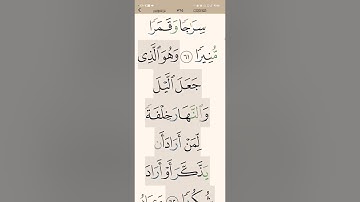 سِرَٰجًا وَقَمَرًا
مُّنِيرًا ٦١ وَهُوَ ٱلَّذِى
جَعَلَ ٱلَّيْلَ
وَٱلنَّهَارَ خِلْفَةً
لِّمَنْ أَرَادَ أَن
يَذَّكَّرَ أَوْ أَرَادَ
شُكُورًا ٦٢ وَعِبَادُ